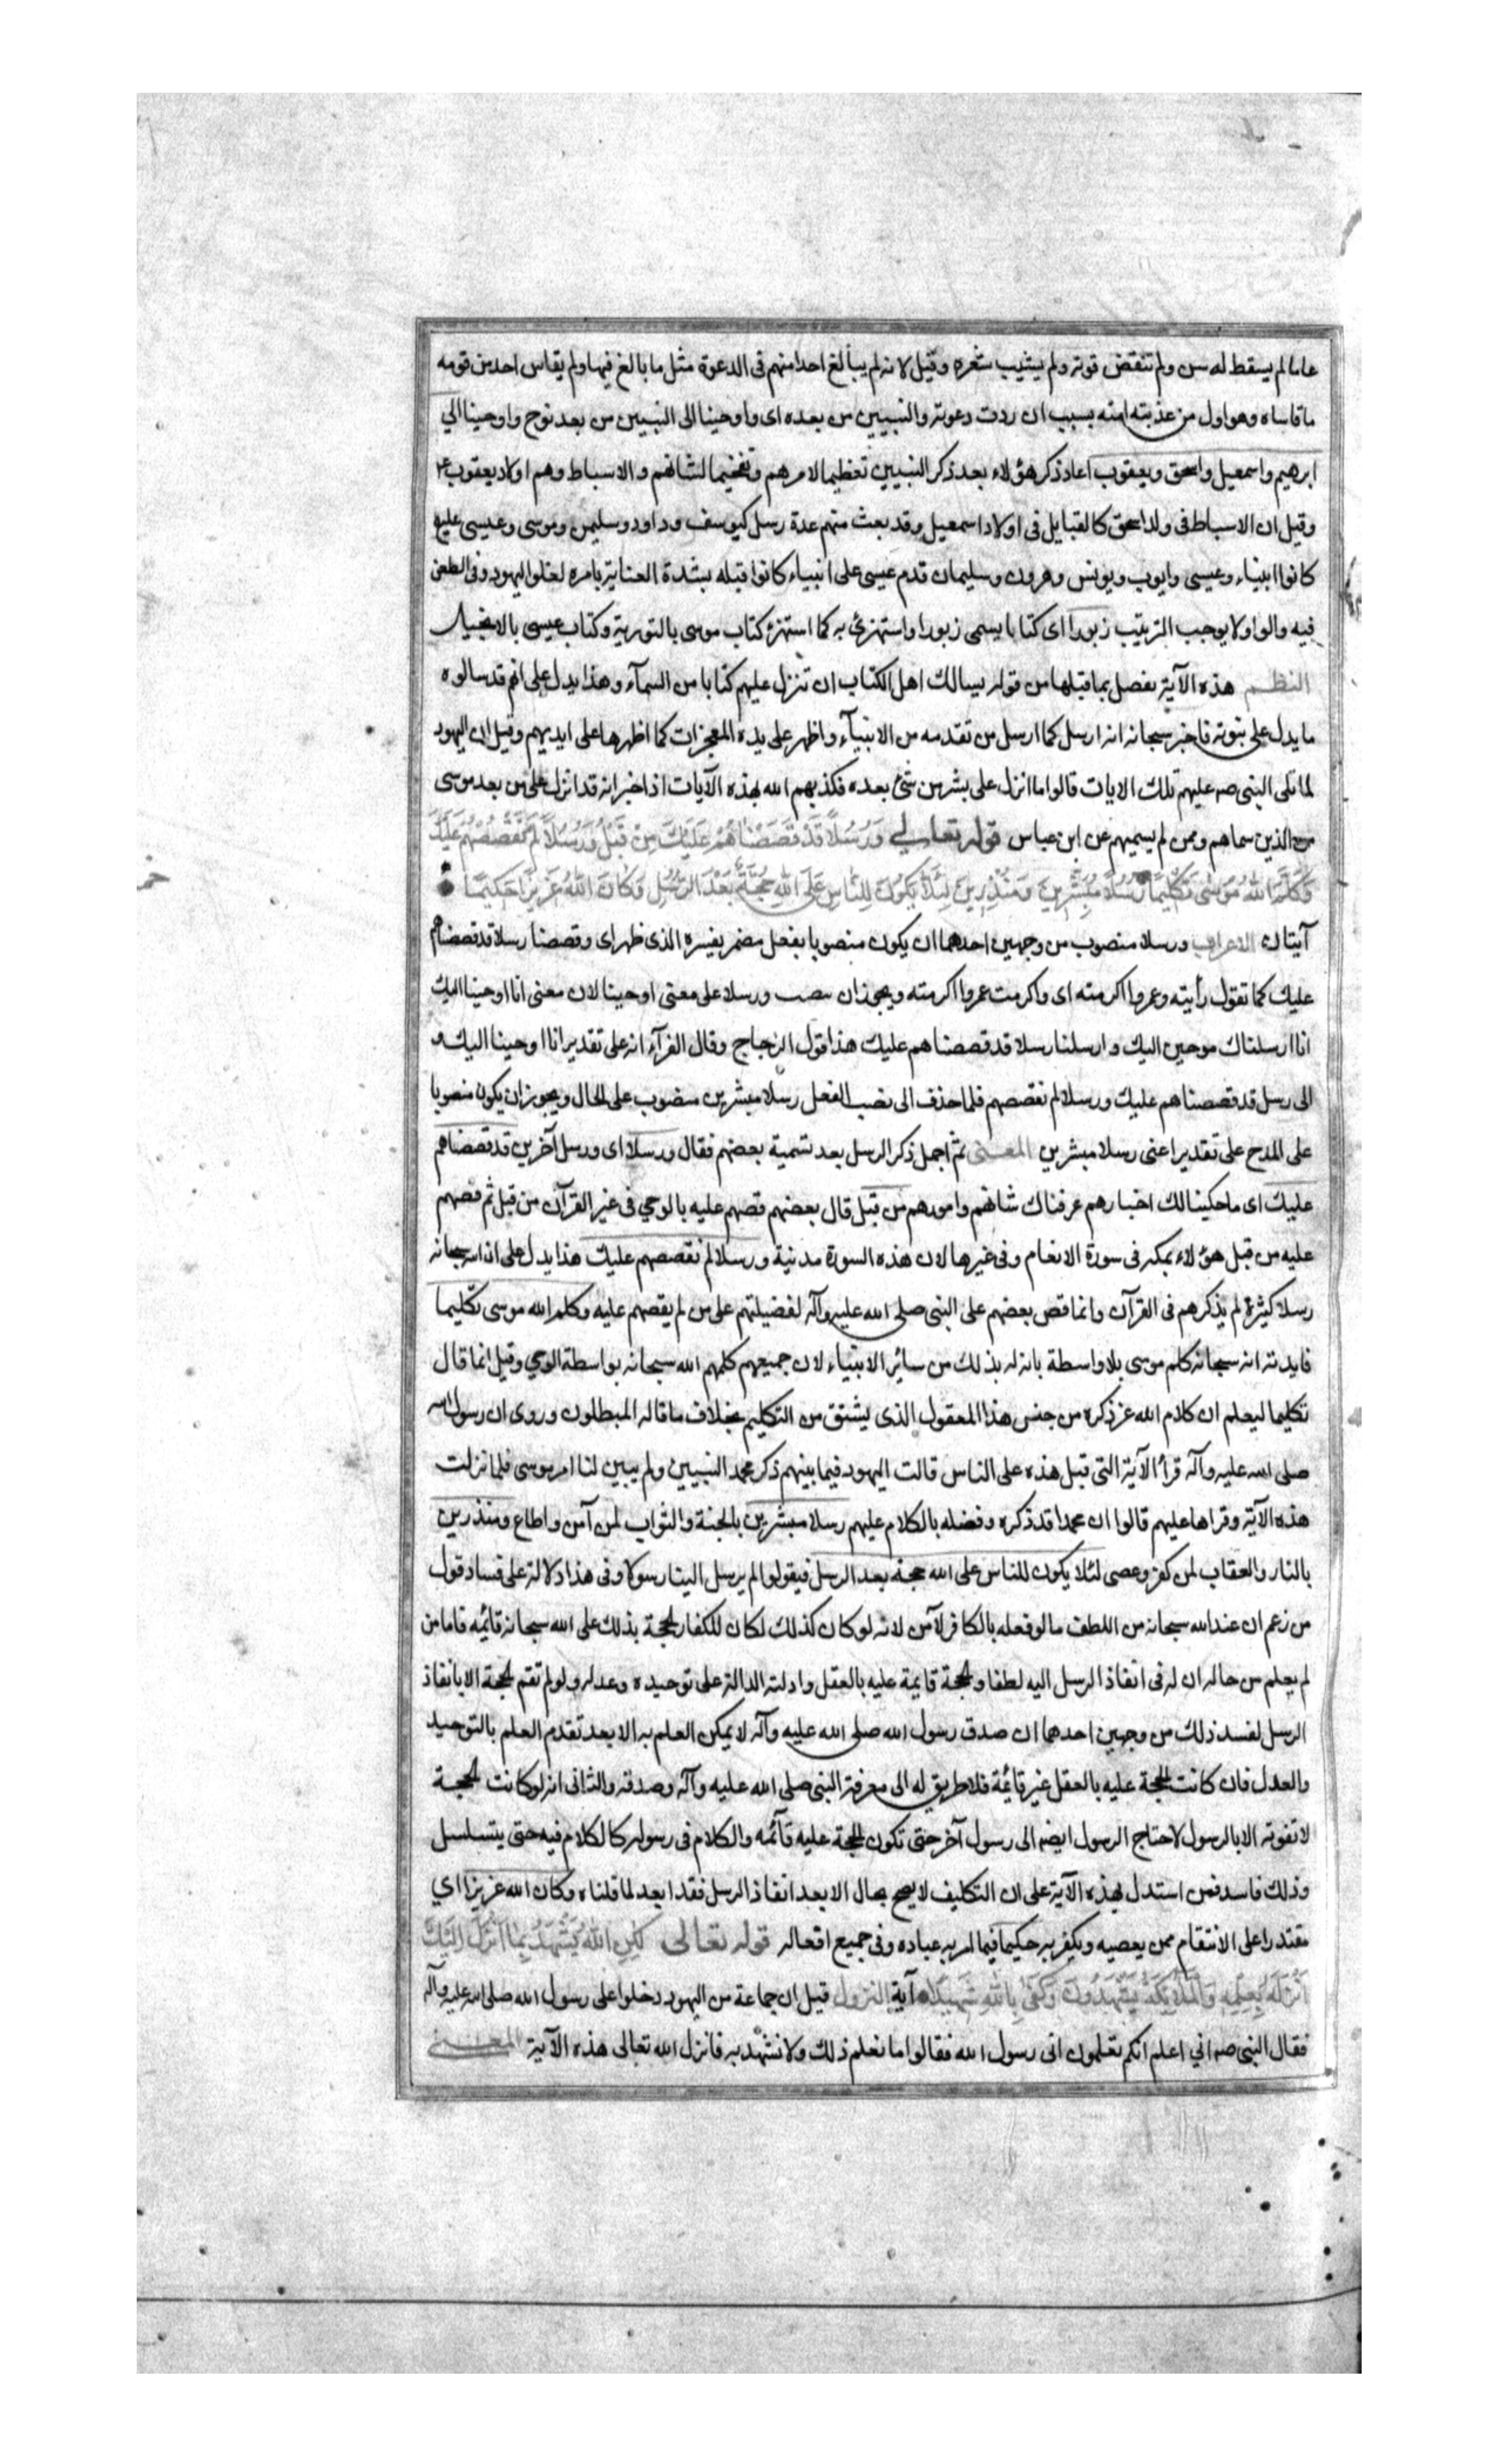 عاما لم يسقط له سن ولم تنقض قوته ولم يشيب شعره وقيل لانه لم يبالغ احد منهم فى الدعوة مثل ما بالغ فيها ولم يقاس احد من قومه
ما قاساه وهو اول من عذبته امته بسبب ان ردت دعوته والنبيين من بعده اى واوحينا الى النبيين من بعد نوح واوحينا الي
ابرهيم واسمعيل واسحق ويعقوب اعاد ذكر هؤلاء بعد ذكر النبيين تعظيما لامرهم وتفخيما لشانهم والاسباط وهم اولاد يعقوب ع
وقيل ان الاسباط فى ولد اسحق كالقبايل فى اولاد اسمعيل وقد بعث منهم عدة رسل كيوسف وداود وسليمن وموسى وعيسى
كانوا انبياء وعيسى وايوب ويونس وهرون وسليمان قدم عيسى على انبياء كانوا قبله بشدة العناية بامره لغلو اليهود فى الطعن
فيه والواو لا يوجب الترتيب زبورا اى كتابا يسمى زبورا واستهزئ به كما استهزئ كتاب موسى بالتورية وكتاب عيسى بالانجيل
النظم هذه الآية تفصل بما قبلها من قوله يسالك اهل الكتاب ان تنزل عليهم كتابا من السمآء وهذا يدل على انهم قد سالوه
ما يدل على نبوته فاخبر سبحانه انه ارسل كما ارسل من تقدمه من الانبيآء واظهر على يده المعجزات كما اظهرها على ايديهم وقيل ان اليهود
لما تلى النبى صم عليهم تلك الايات قالوا ما انزل على بشر من شئ بعده فكذبهم الله بهذه الآيات اذ اخبر انه قد انزل على من بعد موسى
من الذين سماهم وممن لم يسميهم عن ابن عباس قوله تعالى وَرُسُلًا قَدْ قَصَصْنَاهُمْ عَلَيْكَ مِنْ قَبْلُ وَرُسُلًا لَمْ نَقْصُصْهُمْ عَلَيْكَ
وَكَلَّمَ اللهُ مُوسَى تَكْلِيمًا رُسُلًا مُبَشِّرِينَ وَمُنْذِرِينَ لِئَلَّا يَكُونَ لِلنَّاسِ عَلَى اللهِ حُجَّةٌ بَعْدَ الرُّسُلِ وَكَانَ اللهُ عَزِيزًا حَكِيمًا
آيتان الاعراب ورسلا منصوب من وجهين احدهما ان يكون منصوبا بفعل مضمر يفسره الذى ظهر اى وقصصنا رسلا قد قصصناهم
عليك كما تقول رأيته وعمروا اكرمته اى واكرمت عمروا اكرمته ويجوز ان ورسلا على معنى اوحينا لان معنى انا اوحينا اليك
انا ارسلناك موحين اليك وارسلنا رسلا قد قصصناهم عليك هذا قول الزجاج وقال الفرآء انه على تقدير انا اوحينا اليك و
الى رسل قد قصصناهم عليك ورسلا لم نقصصهم فلما حذف الى نصب الفعل رسلا مبشرين منصوب على الحال ويجوز ان يكون منصوبا
على المدح على تقدير اعنى رسلا مبشرين المعنى ثم اجمل ذكر الرسل بعد تسمية بعضهم فقال ورسلا اى ورسل آخرين قد قصصناهم
عليك اى ما حكينا لك اخبارهم عرفناك شانهم وامورهم من قبل قال بعضهم قصهم عليه بالوحي فى غير القرآن من قبل ثم قصهم
عليه من قبل هؤلاء بمكه فى سورة الانعام وفى غيرها لان هذه السورة مدنية ورسلا لم نقصصهم عليك هذا يدل على ان لله سبحانه
رسلا كثيرة لم يذكرهم فى القرآن وانما قص بعضهم على النبى صلى الله عليه وآله لفضيلتهم على من لم يقصهم عليه وكلم الله موسى تكليما
فايدته انه سبحانه كلم موسى بلا واسطة بانه له بذلك من سائر الانبياء لان جميعهم كلمهم الله سبحانه بواسطة الوحي وقيل انما قال
تكليما ليعلم ان كلام الله عز ذكره من جنس هذا المعقول الذى يشتق من التكليم بخلاف ما قاله المبطلون وروى ان رسول الله
صلى الله عليه وآله قرأ الآية التى قبل هذه على الناس قالت اليهود فيما بينهم ذكر محمد النبيين ولم يبين لنا امر موسى فلما نزلت
هذه الآية وقراها عليهم قالوا ان محمدا قد ذكره وفضله بالكلام عليهم رسلا مبشرين بالجنة والثواب لمن آمن واطاع ومنذرين
بالنار والعقاب لمن كفر وعصى لئلا يكون للناس على الله حجة بعد الرسل فيقولوا لم يرسل الينا رسولا وفى هذا دلالة على فساد قول
من زعم ان عند الله سبحانه من اللطف ما لو فعله بالكافر لآمن لانه لو كان كذلك لكان للكفار الحجة بذلك على الله سبحانه قائمه فاما من
لم يعلم من حاله ان له فى انفاذ الرسل اليه لطفا والحجة قايمة عليه بالعقل وادلته الدالة على توحيده وعدله ولو لم تقم الحجة الا بانفاذ
الرسل لفسد ذلك من وجهين احدهما ان صدق رسول الله صلى الله عليه وآله لا يمكن العلم به الا بعد تقدم العلم بالتوحيد
والعدل فان كانت الحجة عليه بالعقل غير قايمة فلا طريق له الى معرفة النبى صلى الله عليه وآله وصدقه والثانى انه لو كانت الحجة
لا تفوته الا بالرسول لاحتاج الرسول ايضا الى رسول آخر حتى تكون الحجة عليه قآئمه والكلام فى رسوله كالكلام فيه حتى يتسلسل
وذلك فاسد فمن استدل بهذه الآية على ان التكليف لا يصح بحال الا بعد انفاذ الرسل فقد ابعد لما قلناه وكان الله عزيزا اي
مقتدرا على الانتقام ممن يعصيه ويكفر به حكيما فيما امر به عباده وفى جميع افعاله قوله تعالى لَكِنِ اللهُ يَشْهَدُ بِمَا أَنْزَلَ إِلَيْكَ
أَنْزَلَهُ بِعِلْمِهِ وَالْمَلَائِكَةُ يَشْهَدُونَ وَكَفَى بِاللهِ شَهِيدًا آية النزول قيل ان جماعة من اليهود دخلوا على رسول الله صلى الله عليه وآله
فقال النبى صم اني اعلم انكم تعلمون انى رسول الله فقالوا ما نعلم ذلك ولا نشهد به فانزل الله تعالى هذه الآية المعنى